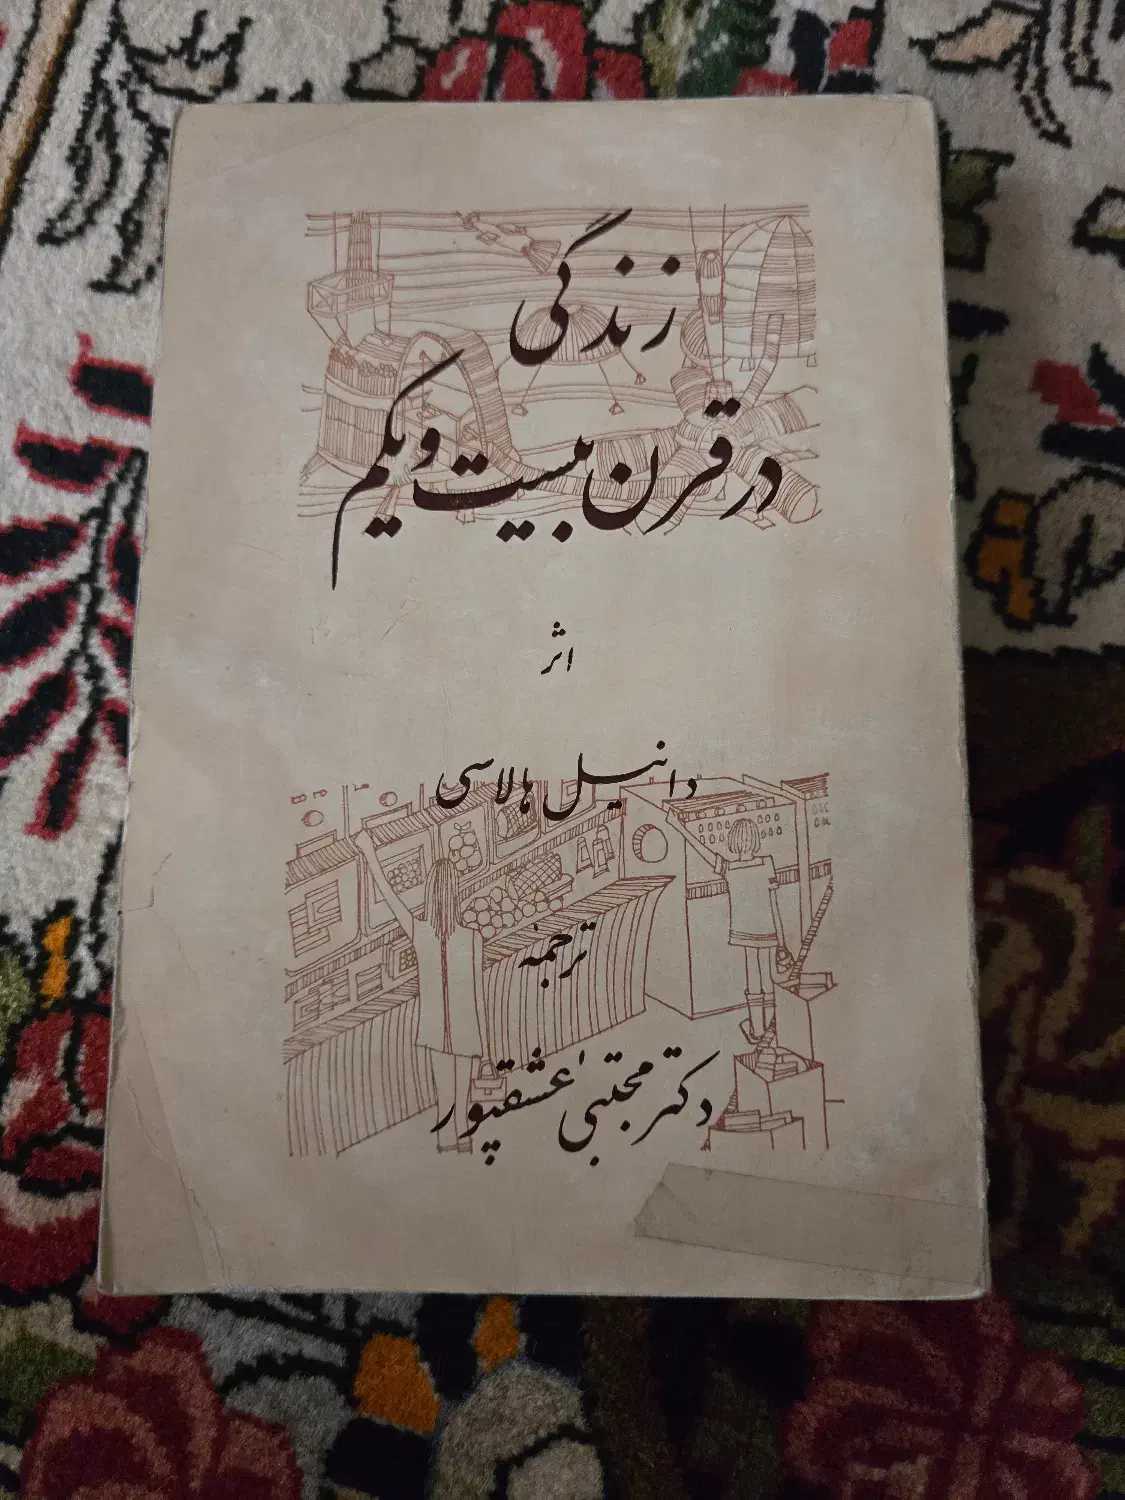 زندگی
در قرن بیست و یکم
اثر
دانیل هالاسی
ترجمهٔ
دکتر مجتبیٰ عشقپور